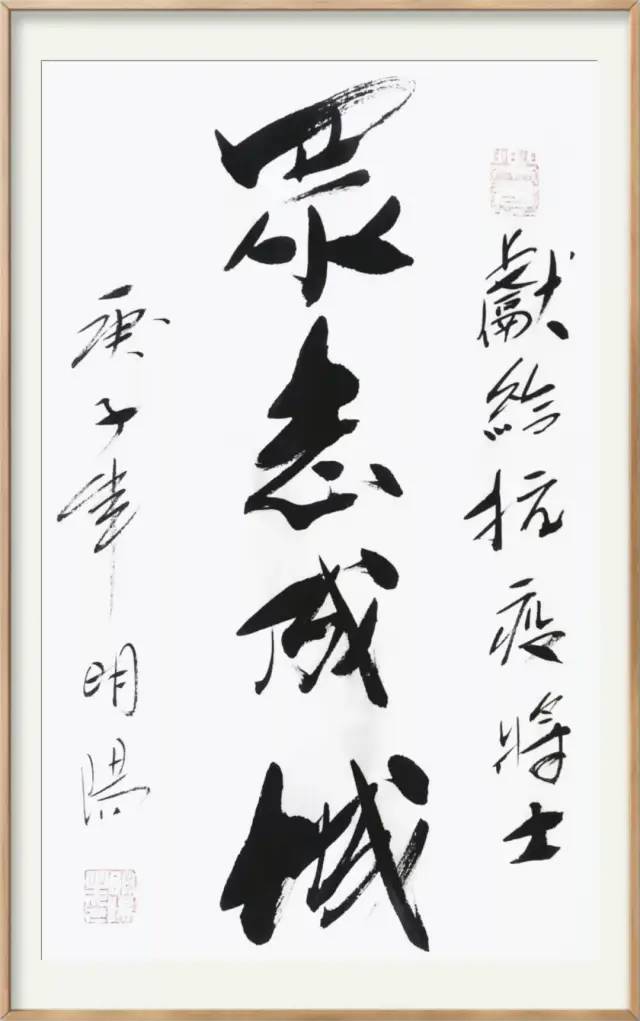 獻給抗疫將士
眾志成城
庚子年 明陽